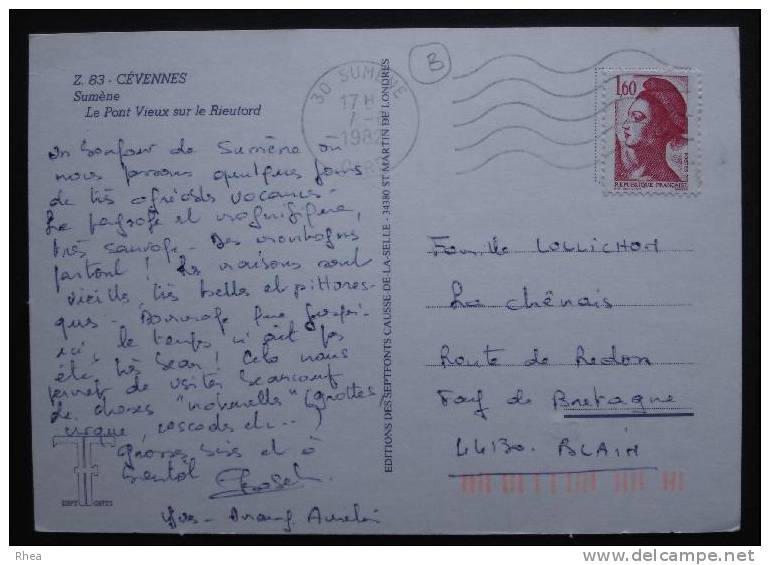 Z. 83 - CÉVENNES
Sumène
Le Pont Vieux sur le Rieutord
B
30 SUMENE
17H
7-
1982
GARD
1,60
REPUBLIQUE FRANÇAISE
Un bonjour de Sumène où
nous passons quelques jours
de très agréables vacances.
Le paysage est magnifique,
très sauvage - Des montagnes
partout ! Les maisons sont
vieilles, très belles et pittores-
ques - Dommage que jusqu'
ici le temps n'ait pas
été très beau ! Cela nous
permet de visiter beaucoup
de choses "naturelles" (grottes
cirque, cascades etc...)
Grosses bises et à
bientôt
Yves - Aurélien
SEPT FONTS
EDITIONS DES SEPTFONTS CAUSSE-DE-LA-SELLE - 34380 ST MARTIN DE LONDRES
Famille LOLLICHON
La chênais
Route de Redon
Fay de Bretagne
44130. BLAIN
Rhea
delcampe.net